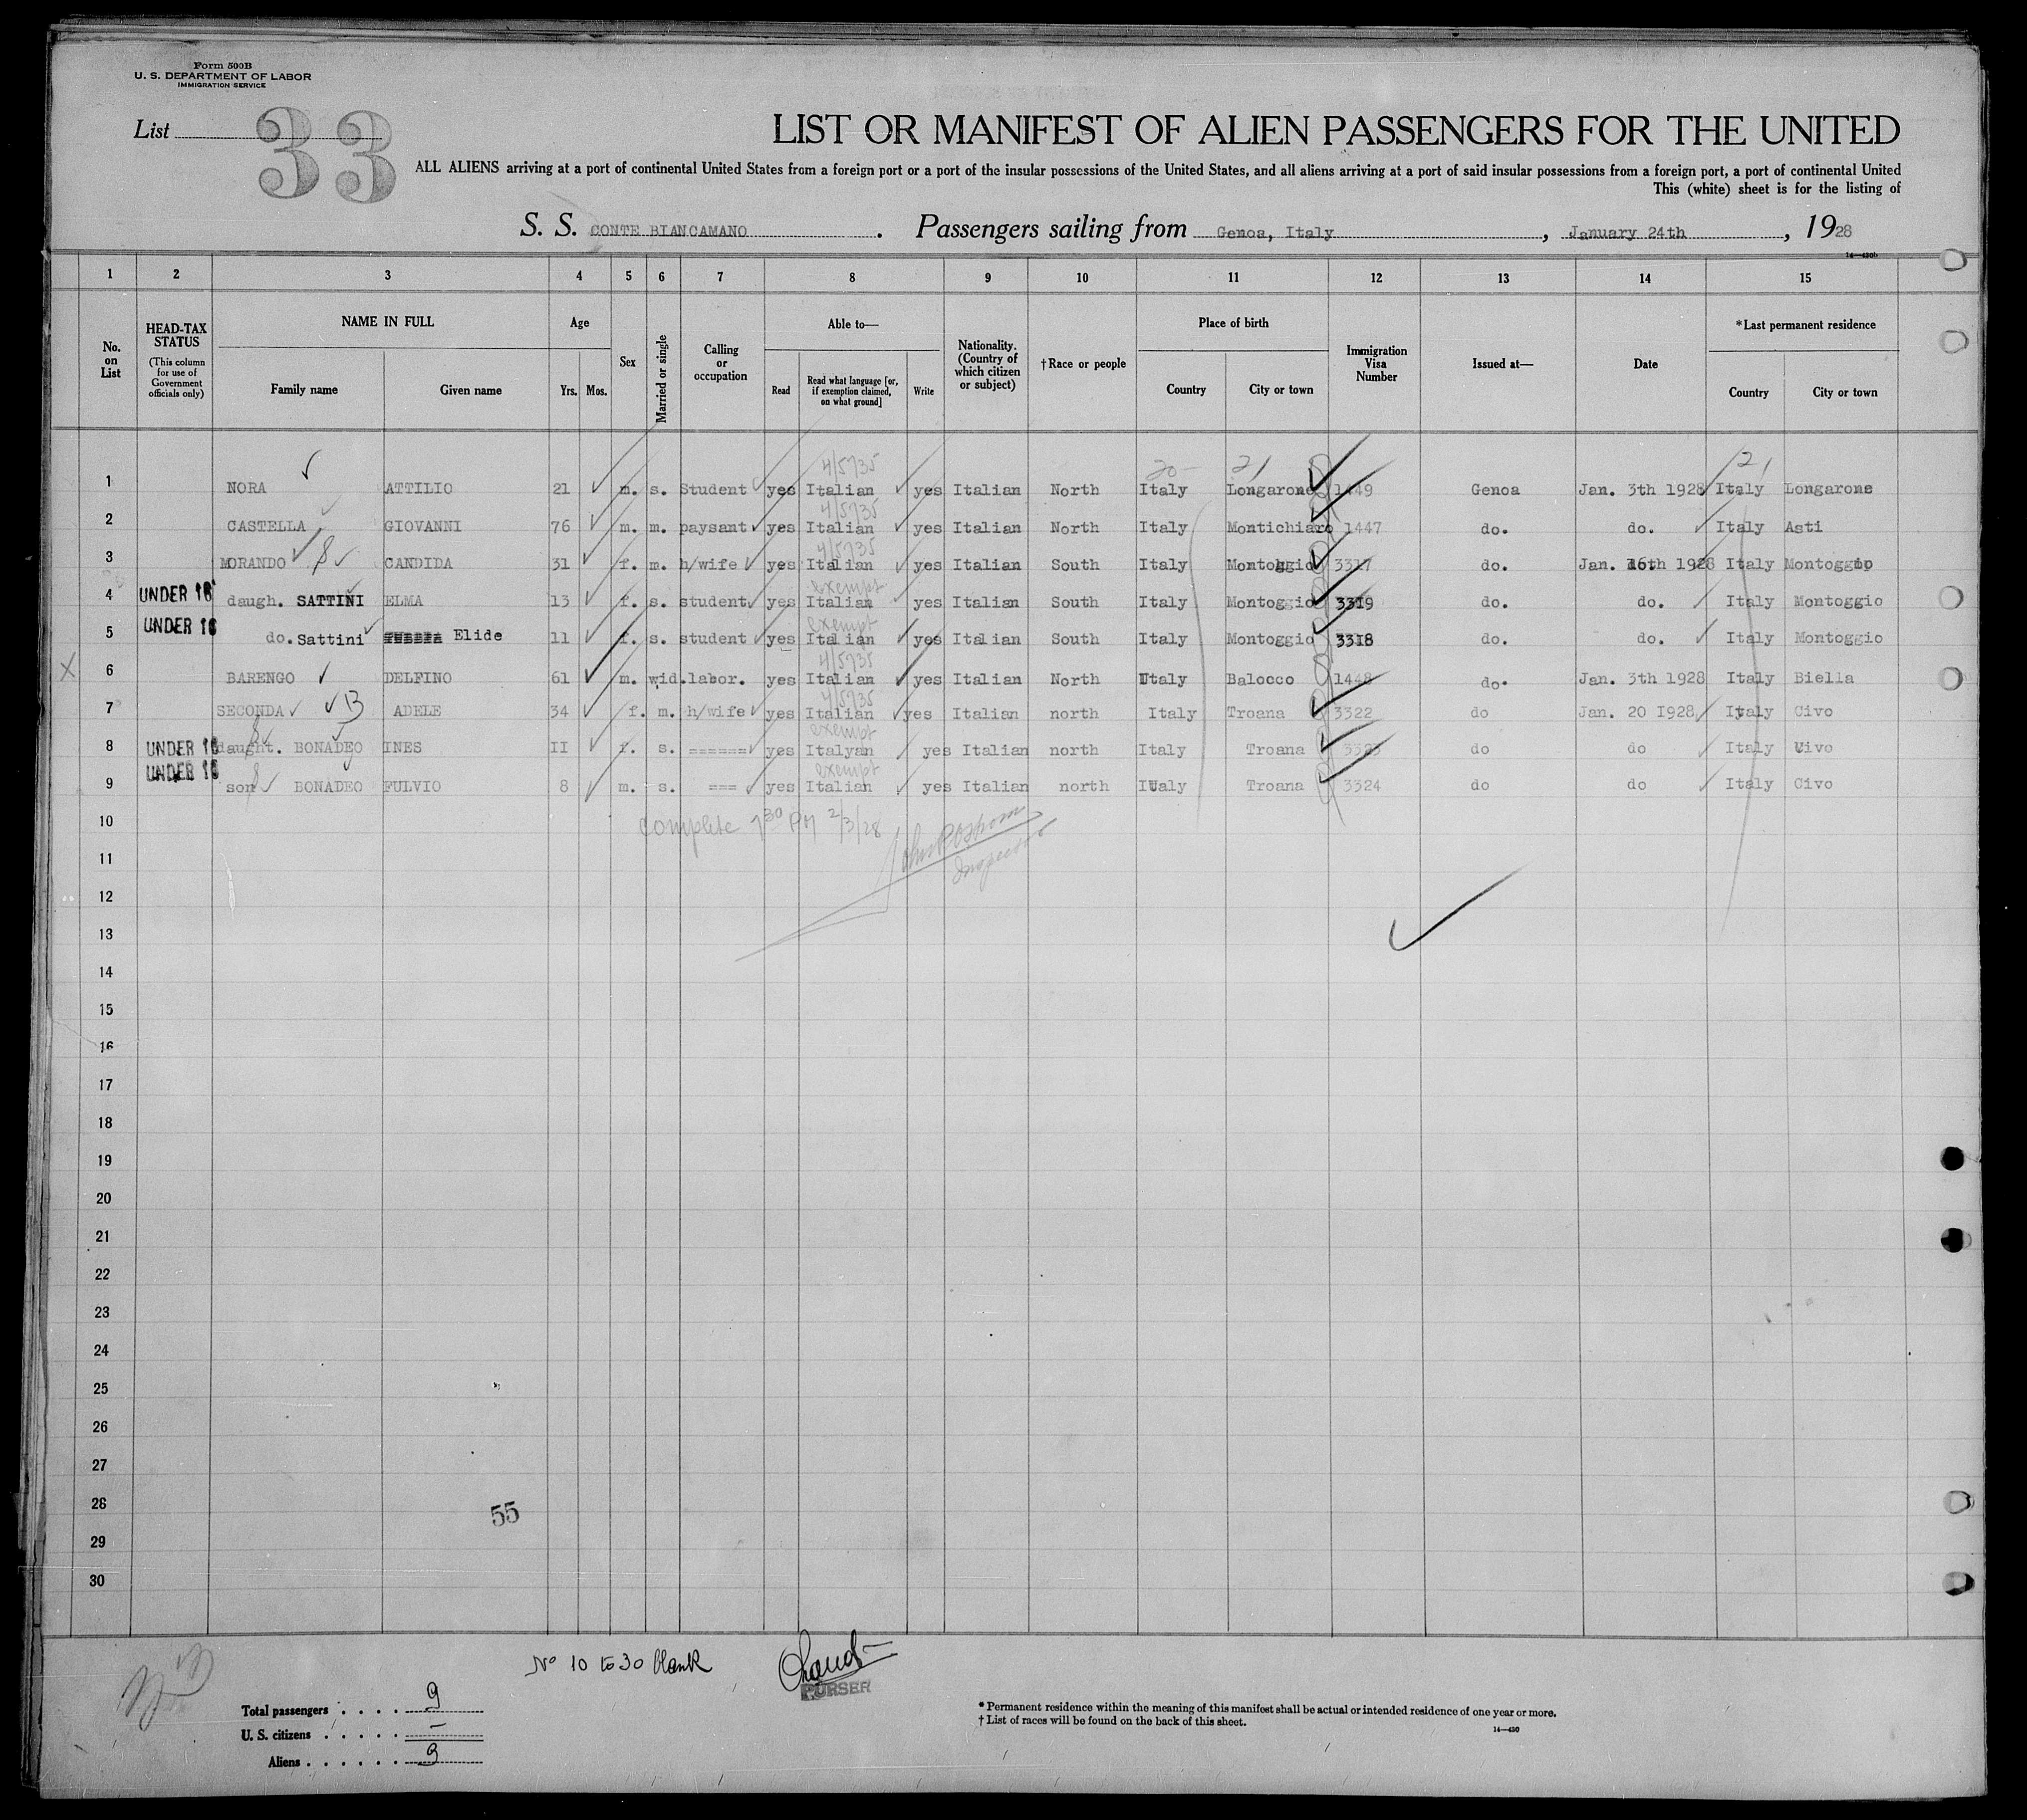 Form 500B
U. S. DEPARTMENT OF LABOR
IMMIGRATION SERVICE
List 33
LIST OR MANIFEST OF ALIEN PASSENGERS FOR THE UNITED
ALL ALIENS arriving at a port of continental United States from a foreign port or a port of the insular possessions of the United States, and all aliens arriving at a port of said insular possessions from a foreign port, a port of continental United
This (white) sheet is for the listing of
S. S. CONTE BIANCAMANO . Passengers sailing from Genoa, Italy , January 24th , 1928
14-430b
1 2 3 4 5 6 7 8 9 10 11 12 13 14 15
No. on List
HEAD-TAX STATUS (This column for use of Government officials only)
NAME IN FULL
Family name Given name
Age
Yrs. Mos.
Sex
Married or single
Calling or occupation
Able to—
Read
Read what language [or, if exemption claimed, on what ground]
Write
Nationality. (Country of which citizen or subject)
†Race or people
Place of birth
Country City or town
Immigration Visa Number
Issued at—
Date
*Last permanent residence
Country City or town
4/5735 20- 21 21
1 NORA ATTILIO 21 m. s. Student yes Italian yes Italian North Italy Longarone 1449 Genoa Jan. 3th 1928 Italy Longarone
4/5735
2 CASTELLA GIOVANNI 76 m. m. paysant yes Italian yes Italian North Italy Montichiaro 1447 do. do. Italy Asti
4/5735
3 MORANDO CANDIDA 31 f. m. h/wife yes Italian yes Italian South Italy Montoggio 3317 do. Jan. 16th 1928 Italy Montoggio
exempt
4 UNDER 16 daugh. SATTINI ELMA 13 f. s. student yes Italian yes Italian South Italy Montoggio 3319 do. do. Italy Montoggio
exempt
5 UNDER 16 do. Sattini Elide 11 f. s. student yes Italian yes Italian South Italy Montoggio 3318 do. do. Italy Montoggio
4/5735
X 6 BARENGO DELFINO 61 m. wid. labor. yes Italian yes Italian North Italy Balocco 1448 do. Jan. 3th 1928 Italy Biella
4/5735
7 SECONDA B ADELE 34 f. m. h/wife yes Italian yes Italian north Italy Troana 3322 do Jan. 20 I928 Italy Civo
exempt
8 UNDER 16 daught. BONADEO INES II f. s. ======= yes Italyan yes Italian north Italy Troana 3323 do do Italy Civo
exempt
9 UNDER 16 son BONADEO FULVIO 8 m. s. === yes Italian yes Italian north Italy Troana 3324 do do Italy Civo
10 complete 7 30 PM 2/3/28
11 Inspector
12
13
14
15
16
17
18
19
20
21
22
23
24
25
26
27
28 55
29
30
No 10 to 30 blank
PURSER
Total passengers . . . . 9
U. S. citizens . . . . . –
Aliens . . . . . . 9
* Permanent residence within the meaning of this manifest shall be actual or intended residence of one year or more.
† List of races will be found on the back of this sheet.
14-430